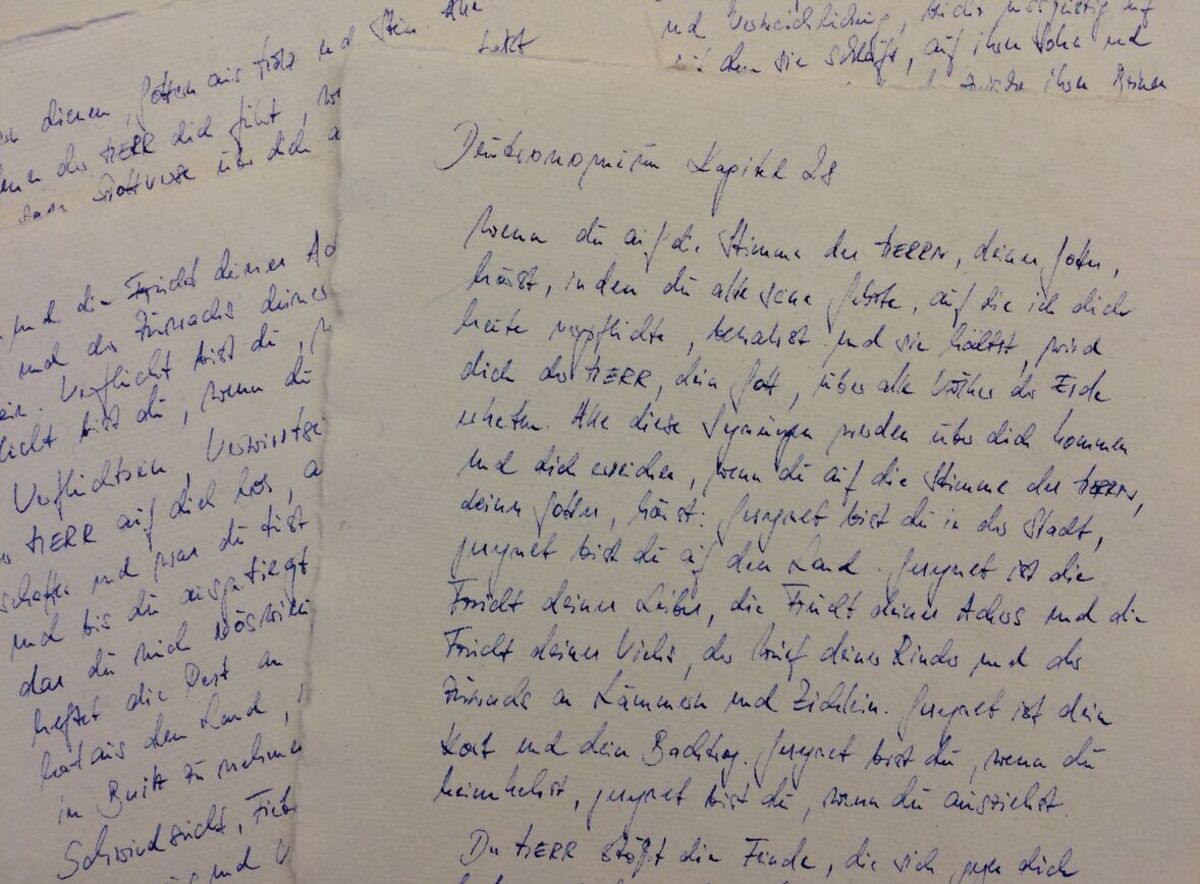 und Stein. Alle
steht
und Verweichlichung, blickt missgünstig auf
mit dem sie schläft, auf ihren Sohn und
ihren Beinen
dienen, Göttern aus Holz
der HERR dich führt,
Spottverse über dich
Deuteronomium Kapitel 28
Wenn du auf die Stimme des HERRN, deines Gottes,
hörst, indem du alle seine Gebote, auf die ich dich
heute verpflichte, bewahrst und sie hältst, wird
dich der HERR, dein Gott, über alle Völker der Erde
erheben. Alle diese Segnungen werden über dich kommen
und dich erreichen, wenn du auf die Stimme des HERRN,
deines Gottes, hörst: Gesegnet bist du in der Stadt,
gesegnet bist du auf dem Land. Gesegnet ist die
Frucht deines Leibes, die Frucht deines Ackers und die
Frucht deines Viehs, der Wurf deiner Rinder und der
Zuwachs an Lämmern und Zicklein. Gesegnet ist dein
Korb und dein Backtrog. Gesegnet bist du, wenn du
heimkehrst, gesegnet bist du, wenn du ausziehst.
Der HERR stößt die Feinde, die sich gegen dich
und die Frucht deines
und der Zuwachs deines
Verflucht bist du,
bist du, wenn du
Verfluchtsein,
HERR auf dich los,
und was du tust
und bis du ausgetilgt
du mich
heftet die Pest an
hat aus dem Land,
in Besitz zu nehmen
Schwindsucht,
und